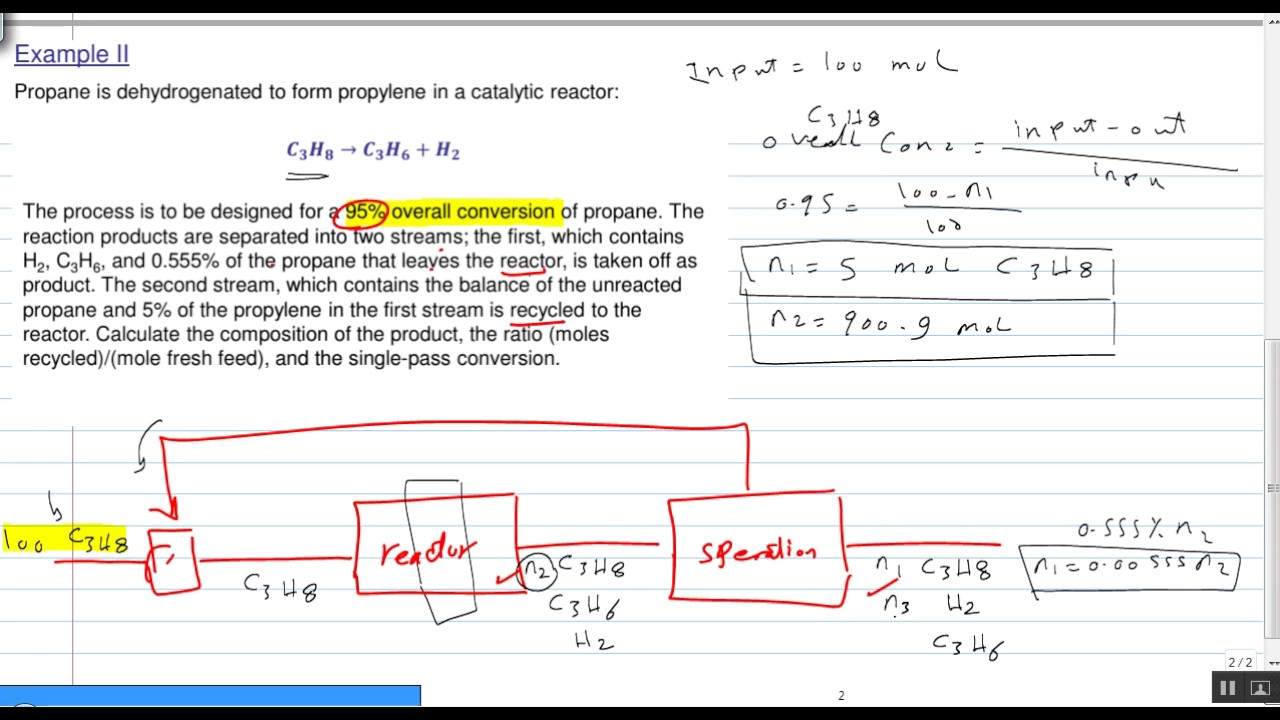 Example II
Propane is dehydrogenated to form propylene in a catalytic reactor:
C₃H₈ → C₃H₆ + H₂
The process is to be designed for a 95% overall conversion of propane. The
reaction products are separated into two streams; the first, which contains
H₂, C₃H₆, and 0.555% of the propane that leaves the reactor, is taken off as
product. The second stream, which contains the balance of the unreacted
propane and 5% of the propylene in the first stream is recycled to the
reactor. Calculate the composition of the product, the ratio (moles
recycled)/(mole fresh feed), and the single-pass conversion.
Input = 100 mol
C3H8
overall Con = input - out
inpu
0.95 = 100 - n1
100
n1 = 5 mol C3H8
n2 = 900.9 mol
100 C3H8
C3H8
reactor
n2 C3H8
C3H6
H2
Speration
n1 C3H8
n3 H2
C3H6
0.555% n2
n1 = 0.00555 n2
2 / 2
2